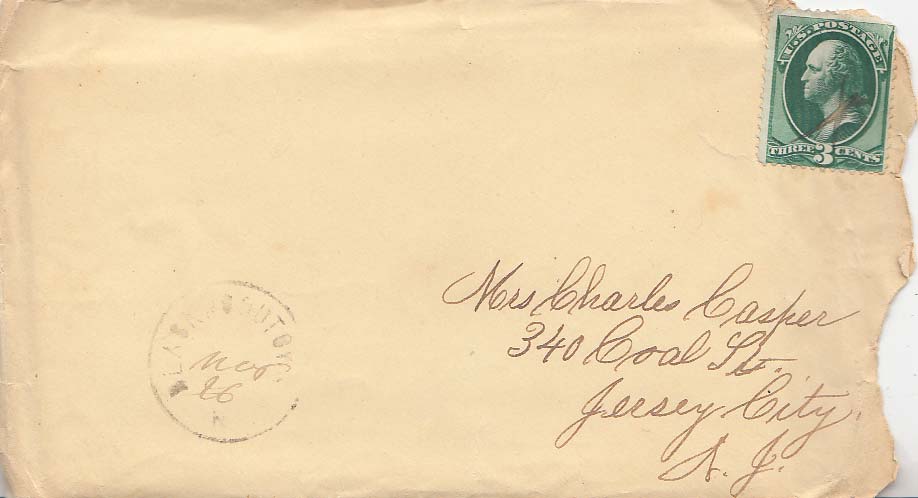 U.S. POSTAGE
THREE 3 CENTS
Mrs Charles Casper
340 Coal St.
Jersey City
N. J.
26